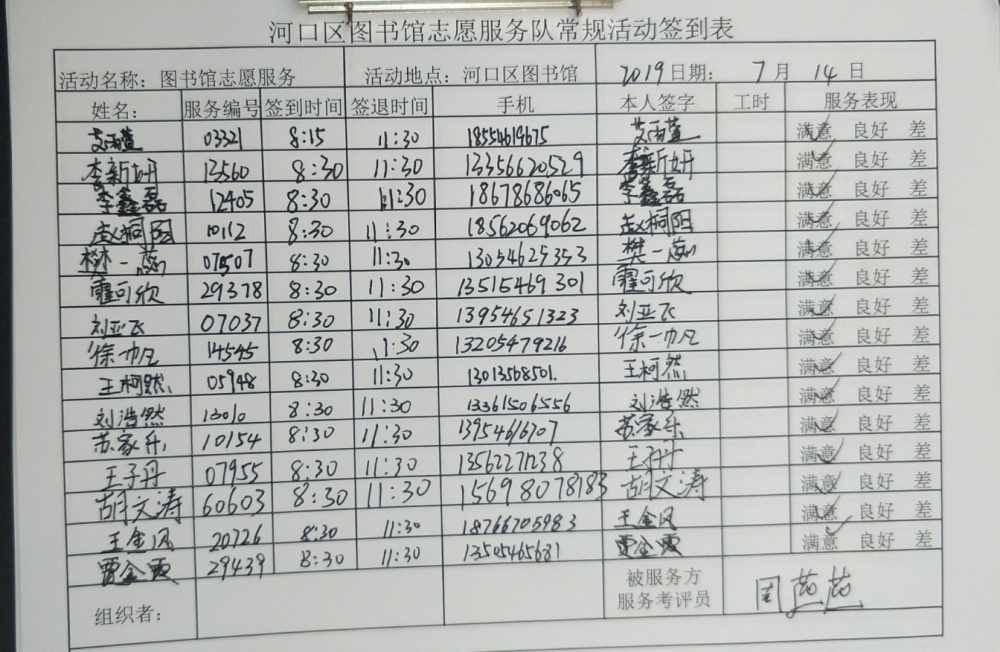 河口区图书馆志愿服务队常规活动签到表
活动名称：图书馆志愿服务 活动地点：河口区图书馆 2019日期： 7月 14日
姓名： 服务编号 签到时间 签退时间 手机 本人签字 工时 服务表现
03321 8:15 11:30 18554619675 满意 良好 差
李新妍 13560 8:30 11:30 13356620529 李新妍 满意 良好 差
李鑫磊 12405 8:30 11:30 18678686065 李鑫磊 满意 良好 差
赵桐阳 10112 8:30 11:30 18562069062 赵桐阳 满意 良好 差
樊一 07507 8:30 11:30 13054625353 樊一 满意 良好 差
霍可欣 29378 8:30 11:30 13515469301 霍可欣 满意 良好 差
刘亚飞 07037 8:30 11:30 13954651323 刘亚飞 满意 良好 差
徐一帆 14545 8:30 11:30 13205479216 徐一帆 满意 良好 差
王柯然 05948 8:30 11:30 13013568501. 王柯然 满意 良好 差
刘浩然 13010 8:30 11:30 13361506556 刘浩然 满意 良好 差
苏家乐 10154 8:30 11:30 苏家乐 满意 良好 差
王子丹 07955 8:30 11:30 13562271238 王子丹 满意 良好 差
胡文涛 60603 8:30 11:30 15698078183 胡文涛 满意 良好 差
王金风 20726 8:30 11:30 18766705983 王金风 满意 良好 差
贾金霞 29439 8:30 11:30 13505465681 贾金霞 满意 良好 差
组织者： 被服务方
服务考评员